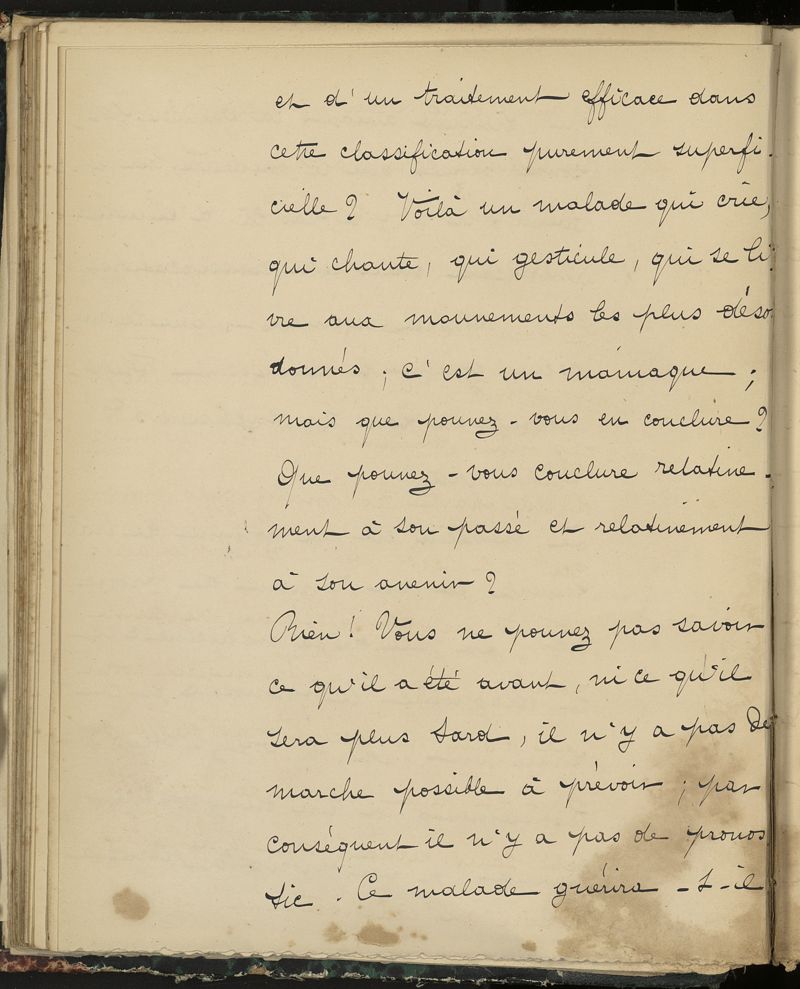 et d'un traitement efficace dans
cette classification purement superfi-
cielle ? Voilà un malade qui crie,
qui chante, qui gesticule, qui se li
vre aux mouvements les plus déso
donnés ; c'est un maniaque ;
mais que pouvez-vous en conclure ?
Que pouvez-vous conclure relative-
ment à son passé et relativement
à son avenir ?
Rien ! Vous ne pouvez pas savoir
ce qu'il a été avant, ni ce qu'il
sera plus tard, il n'y a pas de
marche possible à prévoir ; par
conséquent il n'y a pas de pronos
tic. Ce malade guérira-t-il